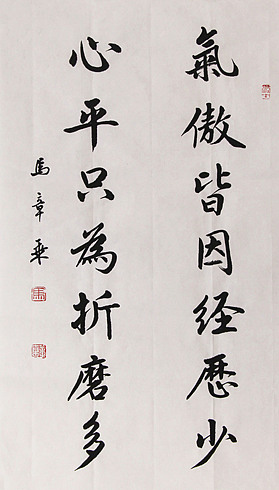 氣傲皆因经歷少
心平只為折磨多
馬章乘